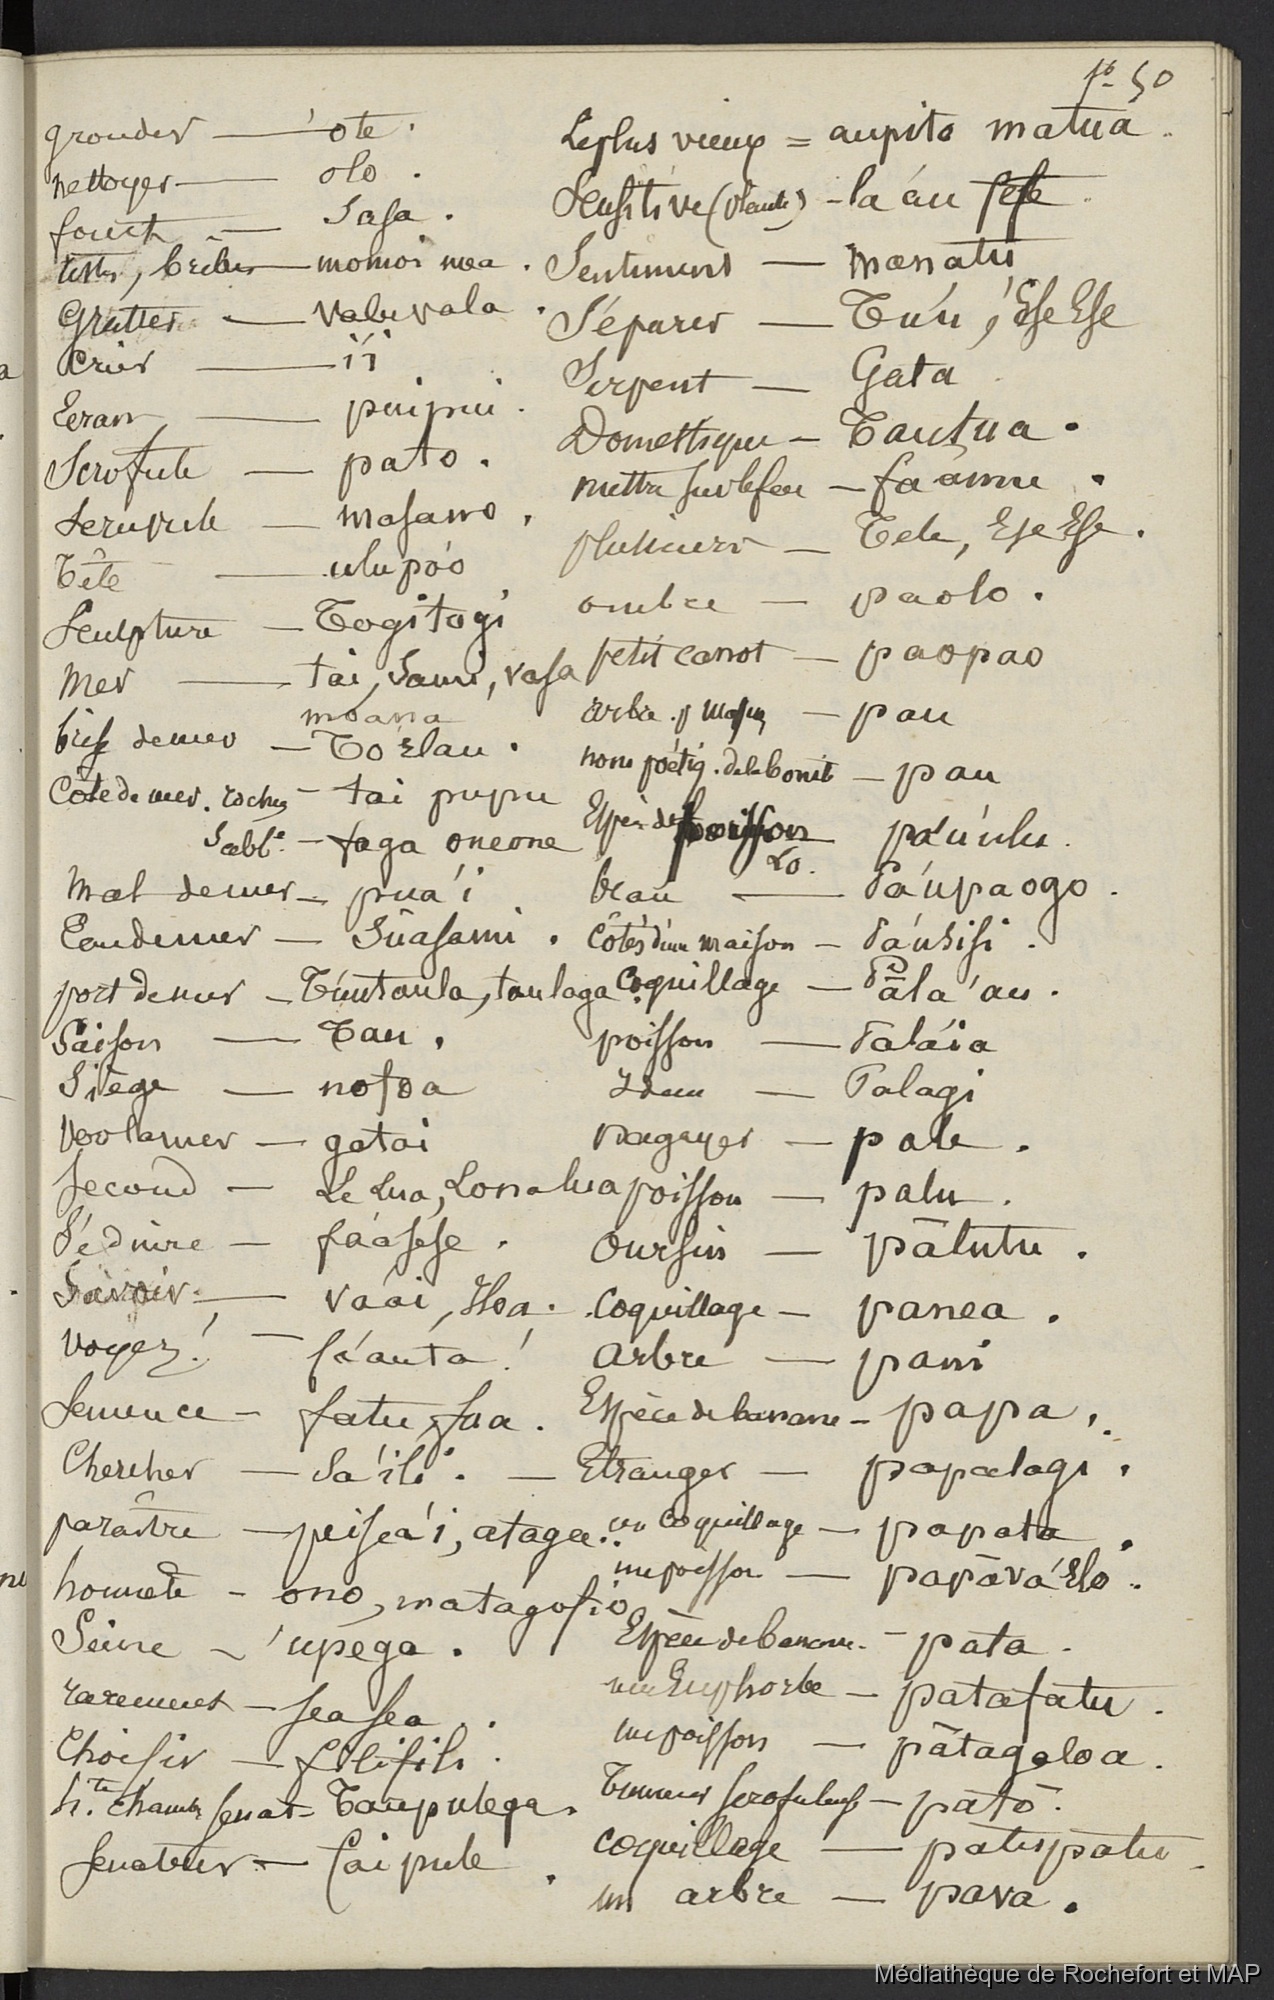 50
gronder — 'ote.
nettoyer — olo.
fouet — Sasa.
— momoi mea.
Gratter — Valuvala
Crier — i'i
Ecran — puipui.
Scrofule — pato.
Scrupule — masamo,
Tête — ulupóo
Sculpture — Togitogi
Mer — tai, Sami, vasa
moana
brise de mer — To'elau.
Côte de mer. roches — tai pupu
Sable — faga oneone
Mal de mer — pua'i
Eau de mer — Suasami.
port de mer — taulaga
Saison — Tau.
Siège — nofoa
Vers la mer — gatai
Second — Le Lua, Lona lua
Séduire — fáasese.
Savoir — váai, Iloa.
Voyez! — fáauta!
Semence — fatu, fua.
Chercher — Sa'ili.
parâtre — atagia.
honnête — ono, matagofie
Seine — 'upega.
rarement — seasea.
Choisir — filifili.
h.te chambre senat — Taupulega.
Senateur — Faipule.
Le plus vieux = aupito matua.
Sensitive (plante) — la áu fefe.
Sentiment — manatu
Séparer — Tu'u, EseEse
Serpent — Gata
Domestique — Tautua.
mettre sur le feu — fa
plusieurs — Tele, EseEse.
ombre — paolo.
petit canot — paopao
arbre — pau
nom poétiq. de la bonite — pau
Espèce de poisson — pa'u'ulu.
Lo.
beau — Pa'upaogo.
Côtés d'une maison — Pa'usisi.
Coquillage — Pāla'au.
poisson — Paláia
Idem — Palagi
Pagayer — pale.
poisson — palu.
Oursin — pālutu.
Coquillage — panea.
Arbre — pani
Espèce de banane — papa,
Etranger — papalagi.
un coquillage — papata.
un poisson — papāvá'Elo.
Espèce de banane — pata.
un Euphorbe — patafatu.
un poisson — pātagaloa.
Tumeur scrofuleuse — pato.
Coquillage — patupatu.
un arbre — pava.
Médiathèque de Rochefort et MAP